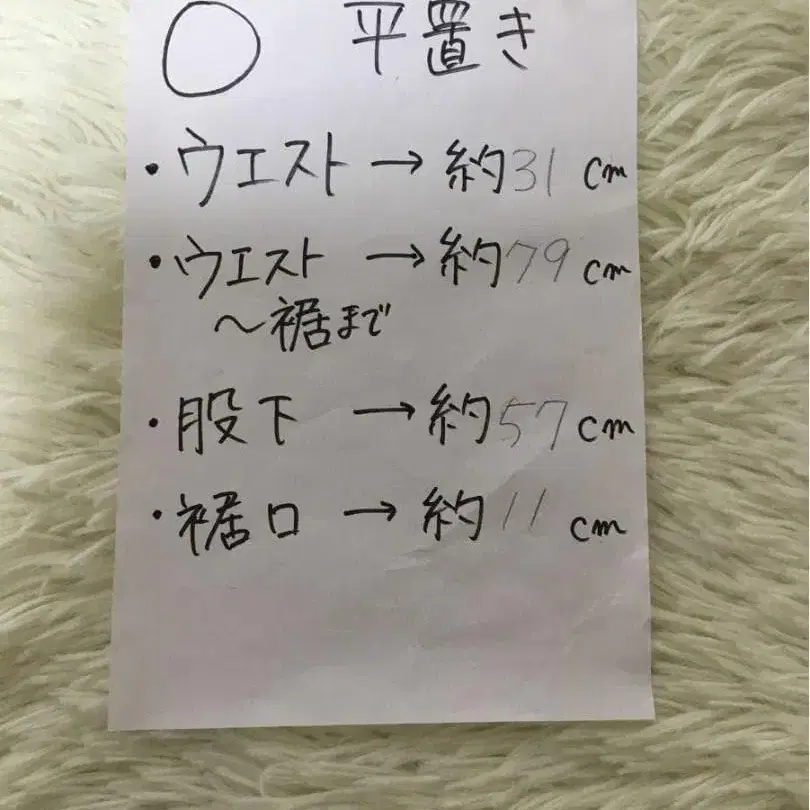 ○ 平置き
・ウエスト→約31cm
・ウエスト→約79cm
～裾まで
・股下→約57cm
・裾口→約11cm